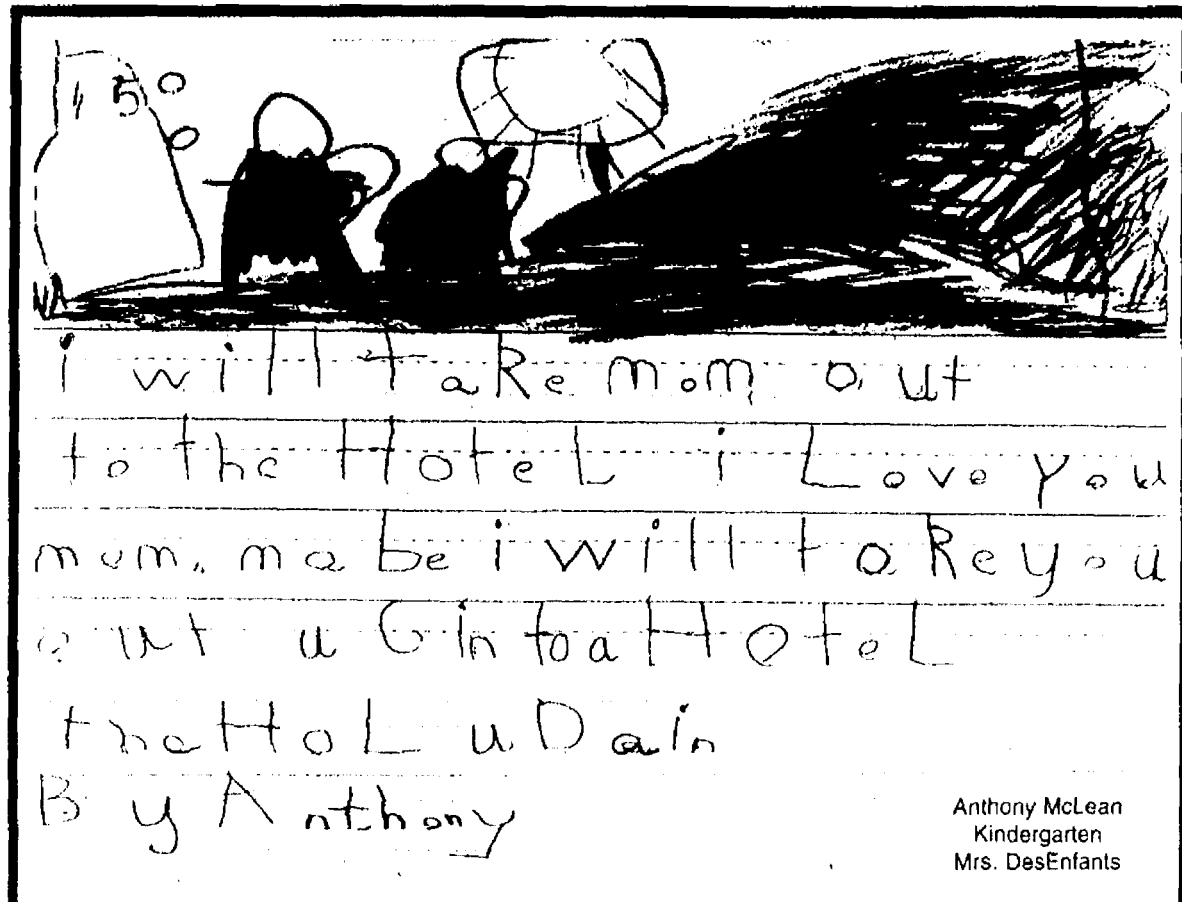 15
i will take mom out
to the HoteL i Love you
mom. mabe i will take you
out u Gin to a HoteL
the HoL u Dain
By Anthony
Anthony McLean
Kindergarten
Mrs. DesEnfants